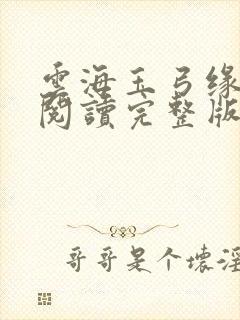 雲海玉弓缘
閱讀完整版
哥哥是个壞淫